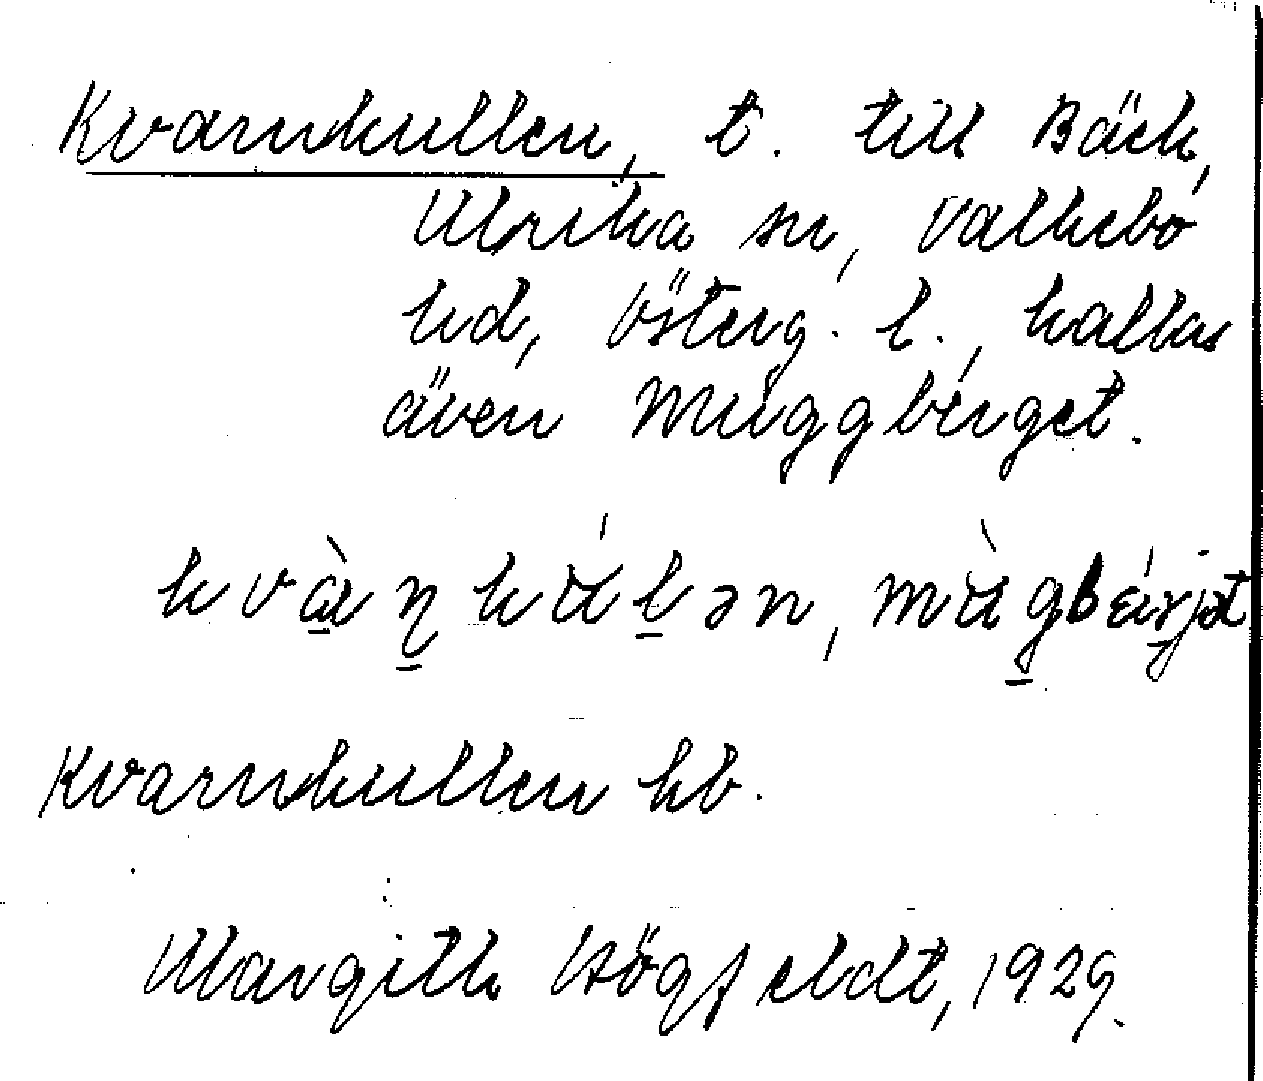 Kvarnkullen, t. till Bäck,
Ulrika sn, Valkebo
hd, Österg. l., kallas
även Muggberget.
kvàɳkúlən, mùgbǽrjət
Kvarnkullen kb.
Margith Högfeldt, 1929.